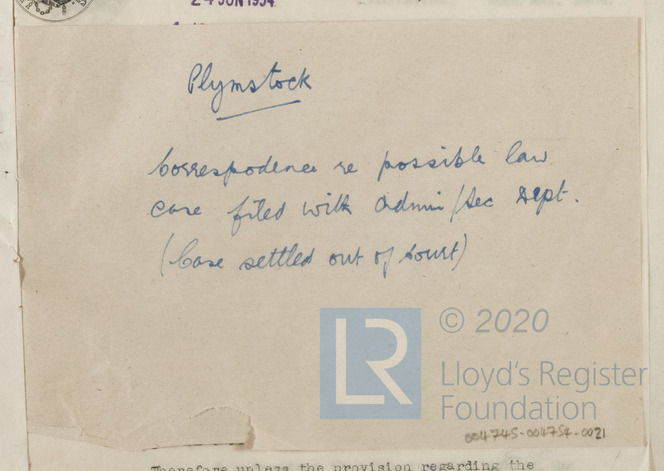 24 JUN 1954
Plymstock
Correspodence re possible law
case filed with Admin/Sec Dept.
(Case settled out of Court)
LR
© 2020
Lloyd's Register
Foundation
004745-004754-0021
Therefore unless the provision regarding the